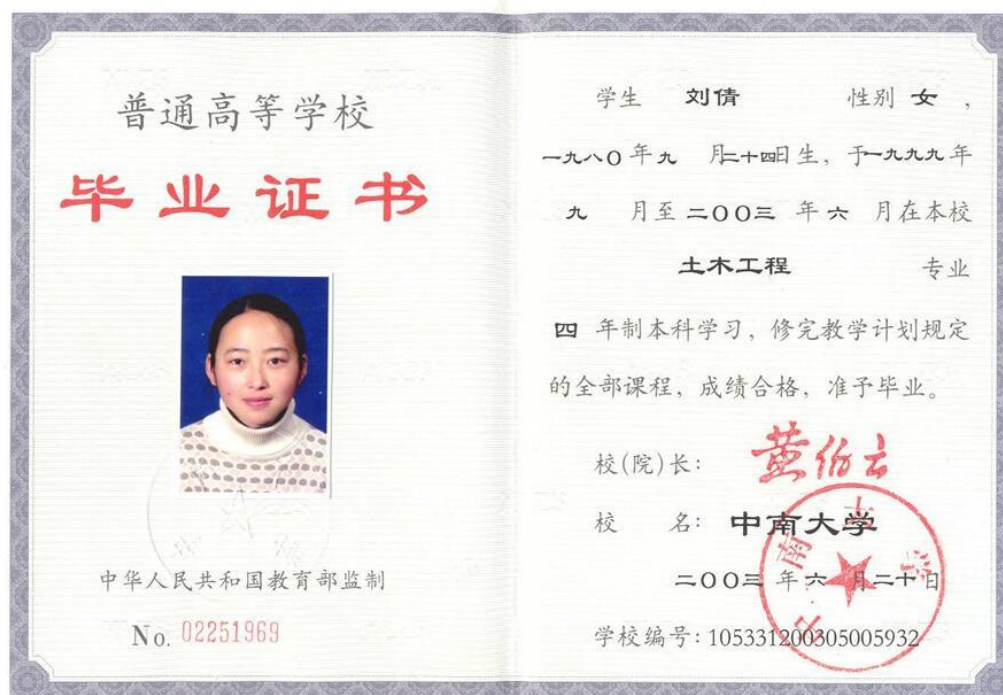 普通高等学校
毕业证书
中华人民共和国教育部监制
No. 02251969
学生 刘倩 性别 女，
一九八〇年九 月二十四日生，于一九九九年
九 月至 二〇〇三 年 六 月在本校
土木工程 专业
四 年制本科学习，修完教学计划规定
的全部课程，成绩合格，准予毕业。
校(院)长： 黄伯云
校 名： 中南大学
二〇〇三 年 六 月二十日
学校编号：105331200305005932
中南大学